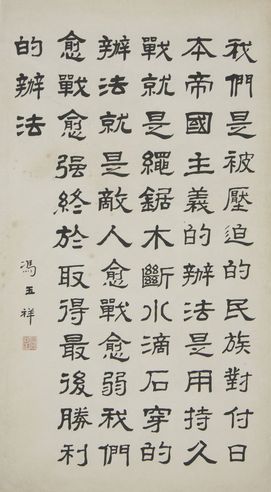 我們是被壓迫的民族對付日
本帝國主義的辦法是用持久
戰就是繩鋸木斷水滴石穿的
辦法就是敵人愈戰愈弱我們
愈戰愈强終於取得最後勝利
的辦法
馮玉祥